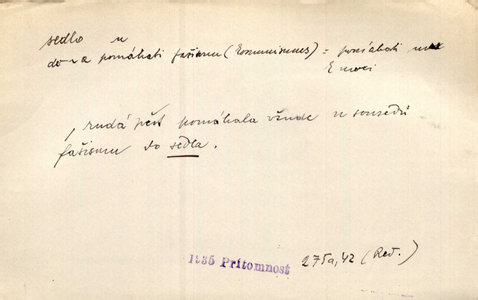 sedlo n
do ~ a pomáhati fašismu (komunismus) = pomáhati
k moci
, rudá pěst pomáhala všude u sousedů
fašismu do sedla.
1935 Přítomnost 275a,42 (Red.)